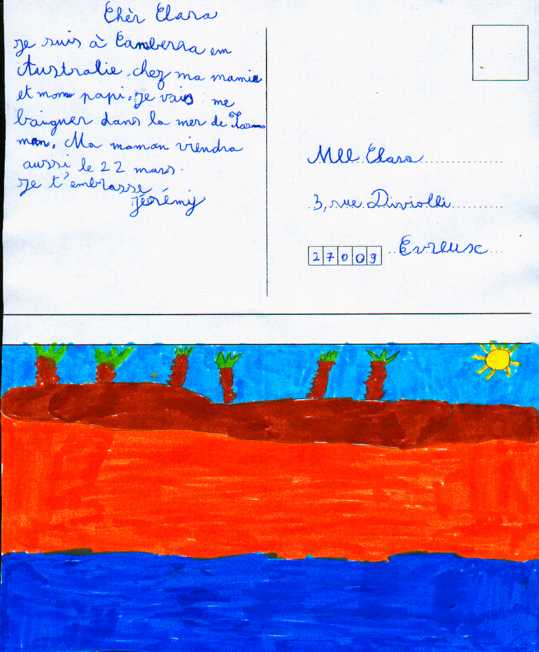 Chèr Clara
Je suis à Canberra en
Australie, chez ma mamie
et mon papi. Je vais me
baigner dans la mer de Tas
man. Ma maman viendra
aussi le 22 mars.
Je t'embrasse
Jérémy
Mll Clara
3, rue Diviolli
27009 Evreux